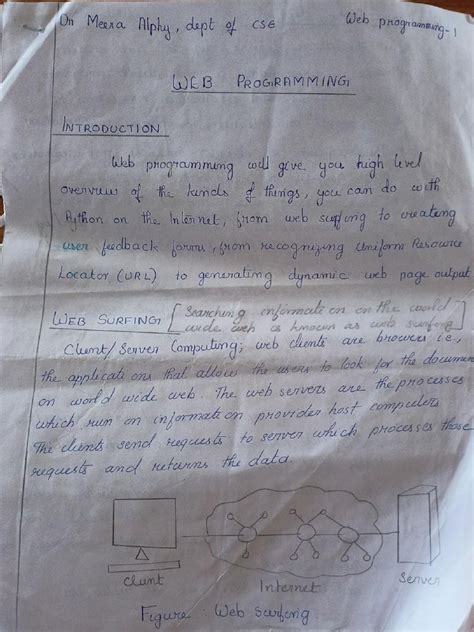 Dr Meera Alphy, dept of CSE
Web programming-1
WEB PROGRAMMING
INTRODUCTION
Web programming will give you high level
overview of the kinds of things, you can do with
Python on the Internet, from web surfing to creating
user feedback forms, from recognizing Uniform Resource
Locator (URL) to generating dynamic web page output
WEB SURFING [Searching information on the world
wide web is known as web surfing]
Client/Server Computing; web clients are browsers i.e.,
the applications that allow the users to look for the documents
on world wide web. The web servers are the processes
which run on information provides host computers
The clients send requests to server which processes those
requests and returns the data.
Client
Internet
Server
Figure : Web Surfing